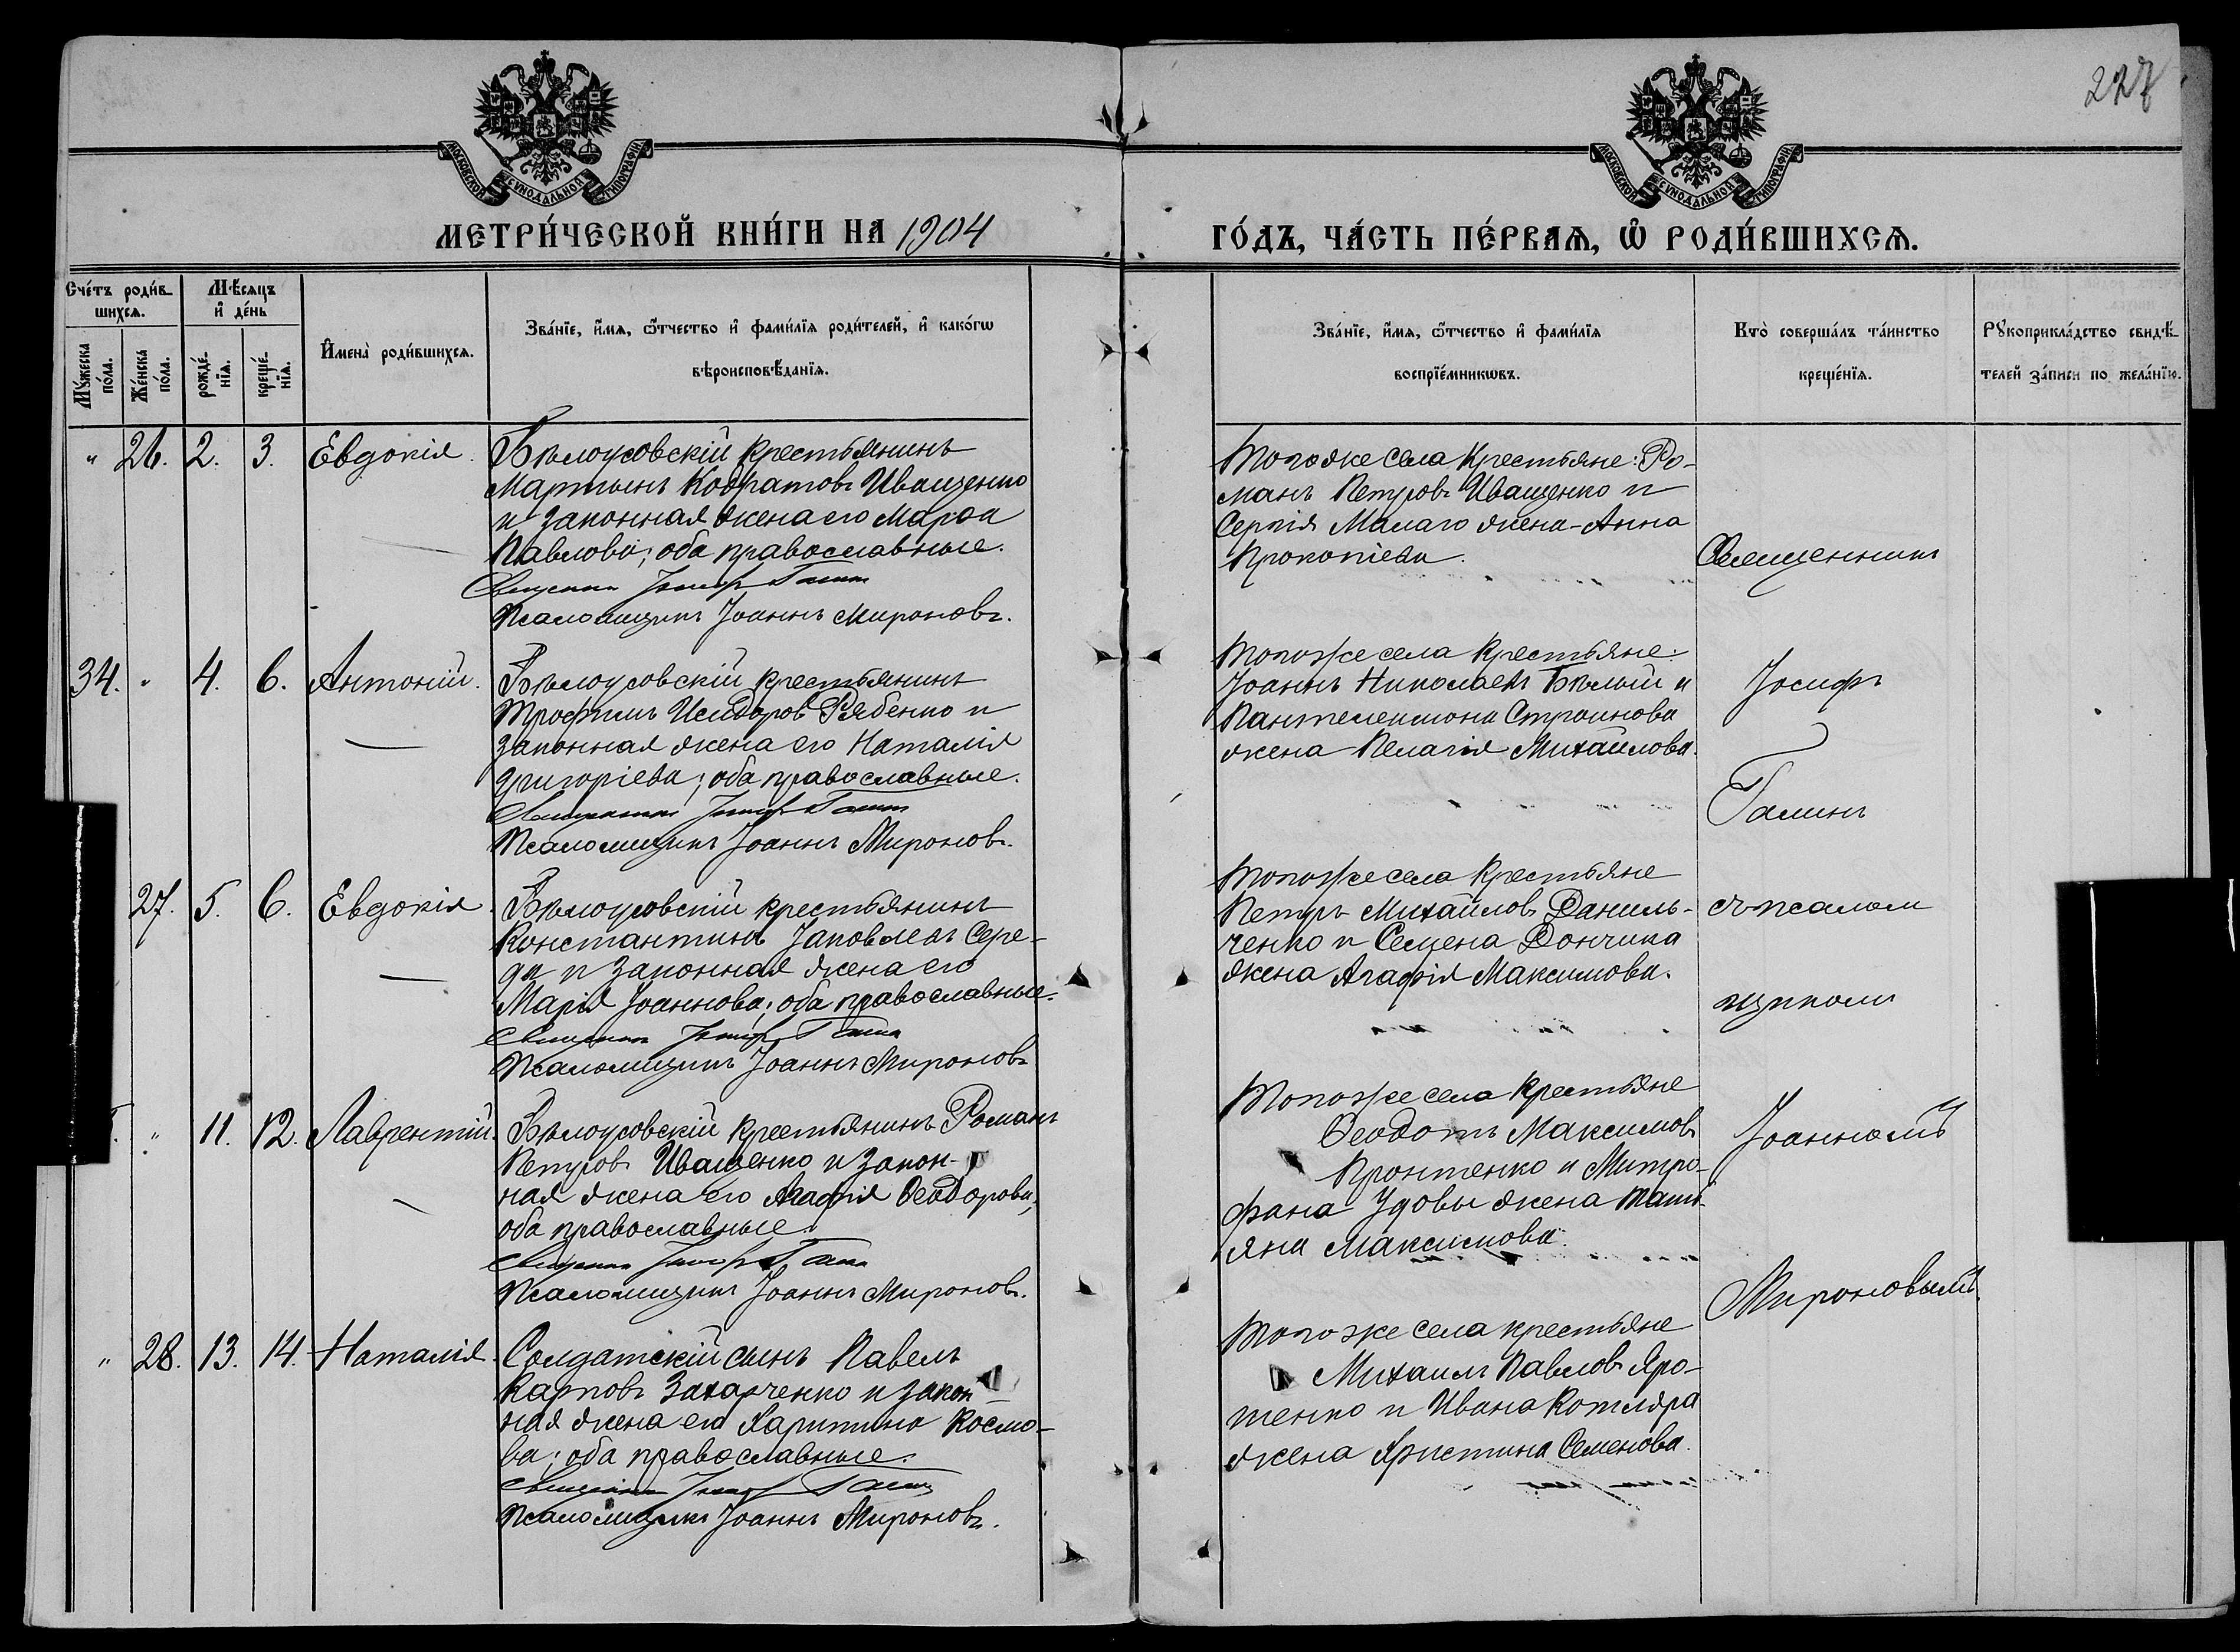 227
МОСКОВСКОЙ СУНОДАЛЬНОЙ ТИПОГРАФІИ
МОСКОВСКОЙ СУНОДАЛЬНОЙ ТИПОГРАФІИ
МЕТРИ́ЧЕСКОЙ КНИ́ГИ НА 1904
ГО́ДЪ, ЧА́СТЬ ПЕ́РВАЯ, Ѽ РОДИ́ВШИХСЯ.
Сче́тъ роди́в-
шихся.
Мѣ́сяцъ
и҆ де́нь
Му́жеска
по́ла.
Же́нска
по́ла.
рожде́-
нїя.
креще́-
нїя.
И҆мена̀ роди́вшихся.
Зва́нїе, и҆́мя, ѻ҆́тчество и҆ фами́лїя роди́телей, и҆ како́гѡ
вѣроисповѣ́данїя.
Зва́нїе, и҆́мя, ѻ҆́тчество и҆ фами́лїя
воспрїе́мникѡвъ.
Кто̀ соверша́лъ та́инство
креще́нїя.
Рꙋкоприкла́дство свидѣ́-
телей за́писи по жела́нїю.
" 26. 2. 3. Евдокія.
Бѣлоусовскій крестьянинъ
Мартынъ Кодратовъ Иващенко
и законная жена его Марѳа
Павлова; оба православные.
Священник Іосиф Галин
Псаломщикъ Іоаннъ Мироновъ.
Тогоже села крестьяне: Ро-
манъ Петровъ Иващенко и
Сергія Малаго жена - Анна
Прокопіева.
34. " 4. 6. Антоній.
Бѣлоусовскій крестьянинъ
Трофимъ Исидоров Рябенко и
законная жена его Наталія
Григоріева; оба православные.
Священник Іосиф Галин
Псаломщикъ Іоаннъ Мироновъ.
Тогоже села крестьяне:
Іоаннъ Николаевъ Бѣлый и
Пантелеимона Строинова
жена Пелагія Михаилова.
27. 5. 6. Евдокія.
Бѣлоусовскій крестьянинъ
Константинъ Іаковлевъ Сере-
да и законная жена его
Марія Іоаннова; оба православные.
Священник Іосиф Галин
Псаломщикъ Іоаннъ Мироновъ
Тогоже села крестьяне
Петръ Михаиловъ Даниль-
ченко и Семена Дончика
жена Агафія Максимова.
" 11. 12. Лаврентій.
Бѣлоусовскій крестьянинъ Романъ
Петровъ Иващенко и закон-
ная жена его Агафія Ѳеодорова;
оба православные.
Священник Іосиф Галин
Псаломщикъ Іоаннъ Мироновъ.
Тогоже села крестьяне
Ѳеодотъ Максимовъ
Кронтенко и Митро-
фана Удовы жена Тать-
яна Максимова.
" 28. 13. 14. Наталія.
Солдатскій сынъ Павелъ
Карповъ Захарченко и закон-
ная жена его Харитина Космо-
ва; оба православные.
Священник Іосиф Галин
Псаломщикъ Іоаннъ Мироновъ.
Тогоже села крестьяне
Михаилъ Павловъ Яро-
шенко и Ивана Котляра
жена Христина Семенова.
Священникъ
Іосифъ
Галинъ
съ псалом
щикомъ
Іоанномъ
Мироновымъ.